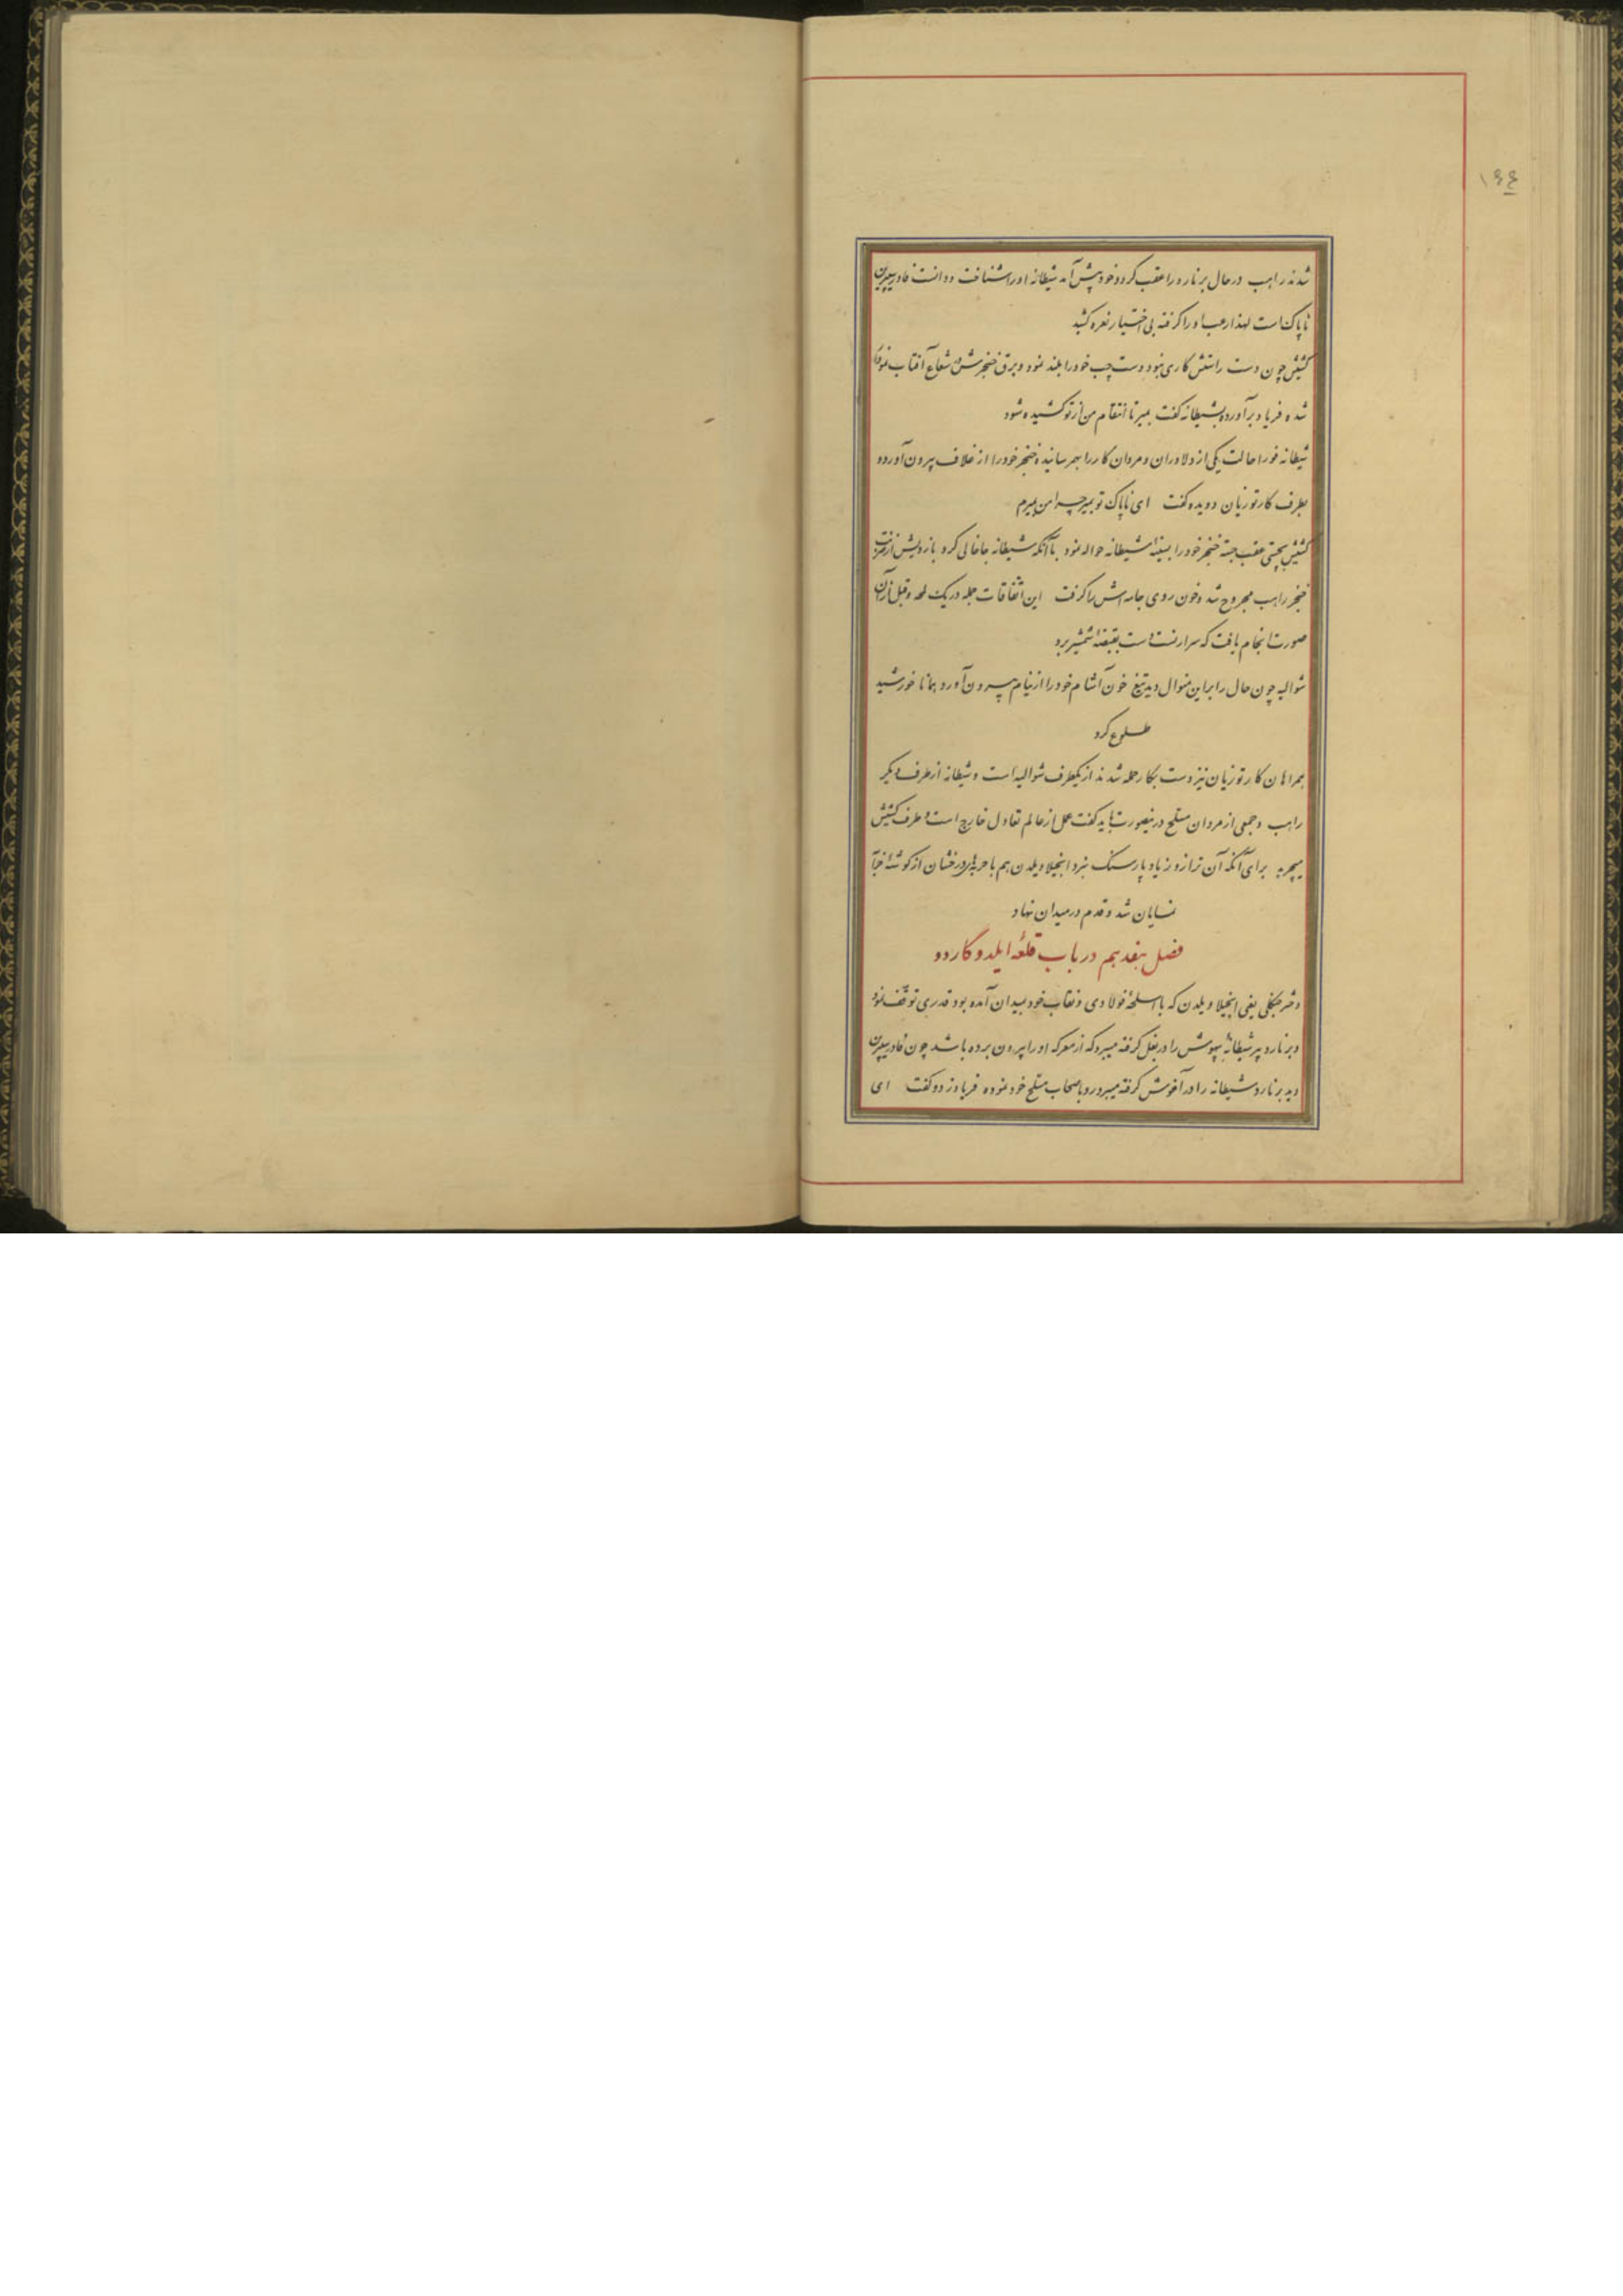 ۱۶۶
شدند راهب در حال برنارد را عقب کرد و خود پیش آمد شیطانه او را شناخت و دانست فادر سپرین
ناپاک است لهذا رعب او را گرفته بی اختیار نعره کشید
کشیش چون دست راستش کاری نبود دست چپ خود را بلند نمود و برق خنجرش در شعاع آفتاب نمودار
شده فریاد برآورده بشیطانه گفت بمیر تا انتقام من از تو کشیده شود
شیطانه فورا حالت یکی از دلاوران و مردان کار را بهمرسانیده خنجر خود را از غلاف بیرون آورده
بطرف کارتوزیان دویده گفت ای ناپاک تو بمیر چرا من بمیرم
کشیش بچستی عقب جسته خنجر خود را بسینهٔ شیطانه حواله نمود با آنکه شیطانه جا خالی کرد بازویش از ضربت
خنجر راهب مجروح شد و خون روی جامه اش را گرفت این اتفاقات جمله در یک لمحه و قبل از آن
صورت انجام یافت که سرارنست دست بقبضهٔ شمشیر برد
شوالیه چون حال را براین منوال دید تیغ خون آشام خود را از نیام بیرون آورد همانا خورشید
طلوع کرد
همراهان کارتوزیان نیز دست بکار حمله شدند از یکطرف شوالیه است و شیطانه از طرف دیگر
راهب و جمعی از مردان مسلح در اینصورت باید گفت عمل از عالم تعادل خارج است و طرف کشیش
میچربد برای آنکه آن ترازو زیاد پارسنگ نبرد انجیلا ویلدن هم با حربهای درخشان از گوشهٔ
نمایان شد و قدم در میدان نهاد
فصل هفدهم در باب قلعهٔ ایلدوگاردو
دختر جنگلی یعنی انجیلا ویلدن که با اسلحهٔ فولادی و نقاب خود بمیدان آمده بود قدری توقف نمود
و برنارد پیر شیطانهٔ بیهوش را در بغل گرفته میبرد که از معرکه او را بیرون برده باشد چون فادر سپرین
دید برنارد شیطانه را در آغوش گرفته میبرد رو باصحاب مسلح خود نموده فریاد زد و گفت ای